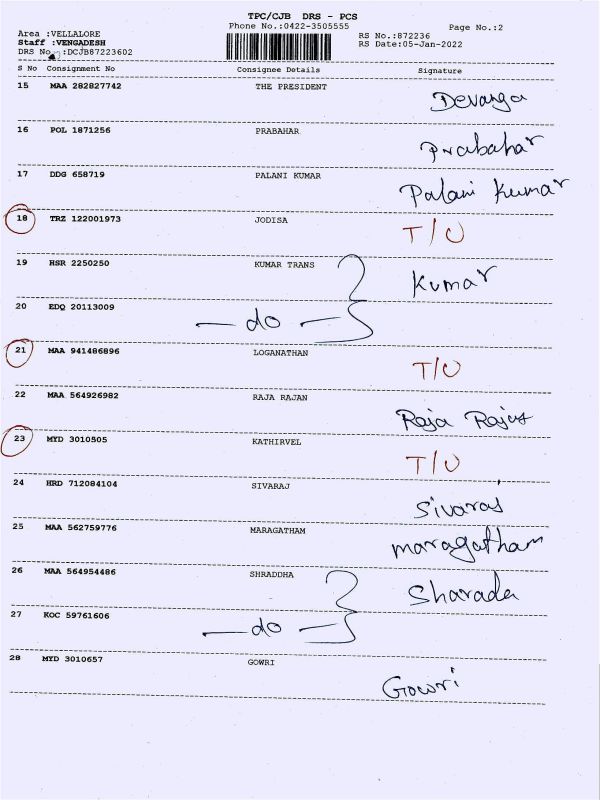 TPC/CJB DRS - PCS
Phone No.:0422-3505555
Page No.:2
Area :VELLALORE
Staff :VENGADESH
DRS No :DCJB87223602
RS No.:872236
RS Date:05-Jan-2022
S No Consignment No Consignee Details Signature
15 MAA 282827742 THE PRESIDENT Devanga
16 POL 1871256 PRABAHAR Prabahar
17 DDG 658719 PALANI KUMAR Palani Kumar
18 TRZ 122001973 JODISA T/O
19 HSR 2250250 KUMAR TRANS Kumar
20 EDQ 20113009 — do —
21 MAA 941486896 LOGANATHAN T/O
22 MAA 564926982 RAJA RAJAN Raja
23 MYD 3010505 KATHIRVEL T/O
24 HRD 712084104 SIVARAJ Sivaras
25 MAA 562759776 MARAGATHAM maragatham
26 MAA 564954486 SHRADDHA Sharada
27 KOC 59761606 — do —
28 MYD 3010657 GOWRI Gowri